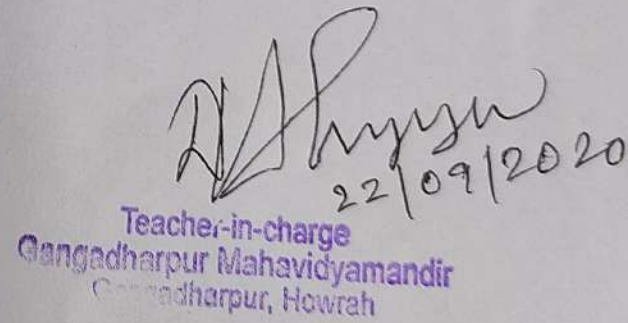 22/09/2020
Teacher-in-charge
Gangadharpur Mahavidyamandir
Gangadharpur, Howrah